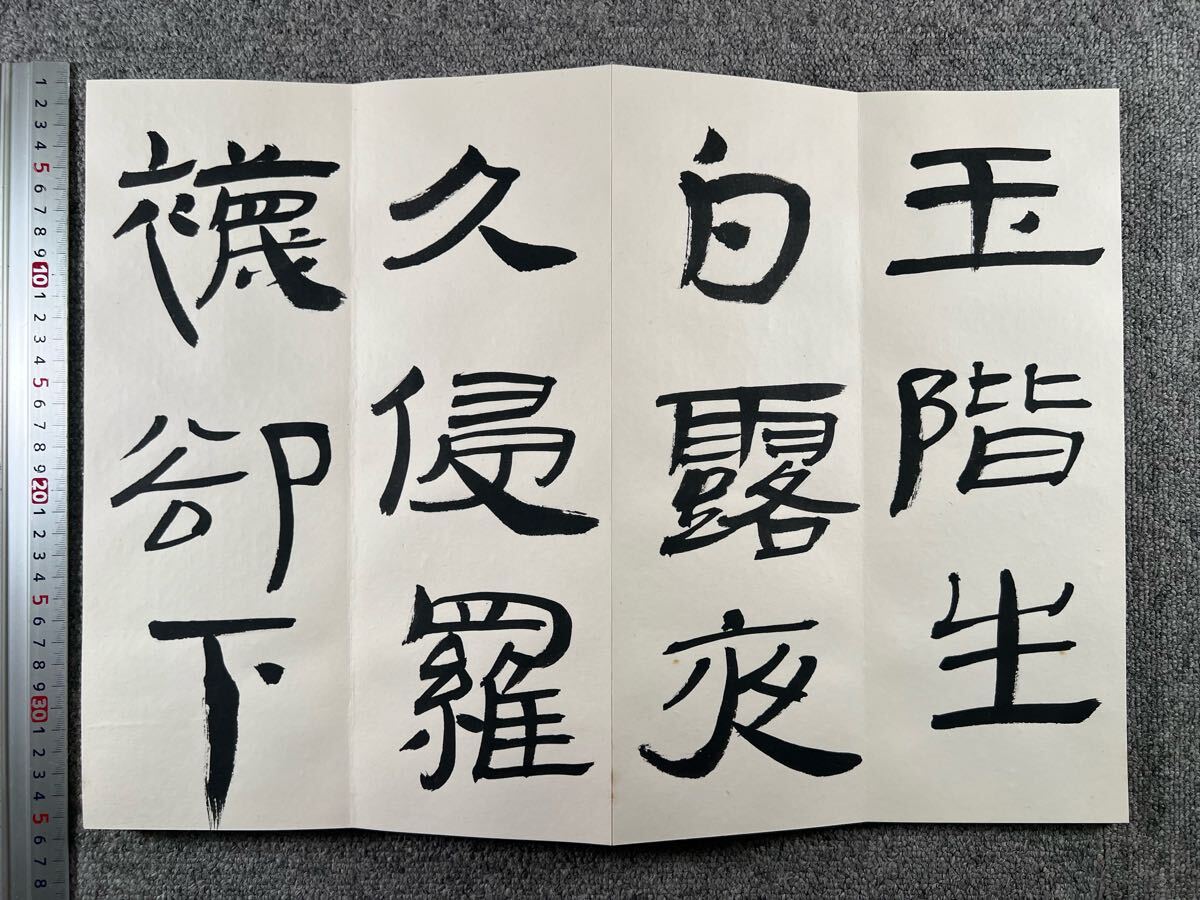 玉階生
白露夜
久侵羅
襪卻下
1 2 3 4 5 6 7 8 9 10 1 2 3 4 5 6 7 8 9 20 1 2 3 4 5 6 7 8 9 30 1 2 3 4 5 6 7 8